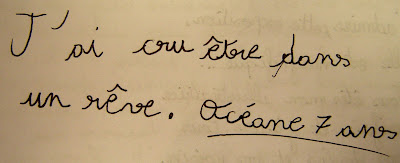 J'ai cru être dans
un rêve. Océane 7 ans